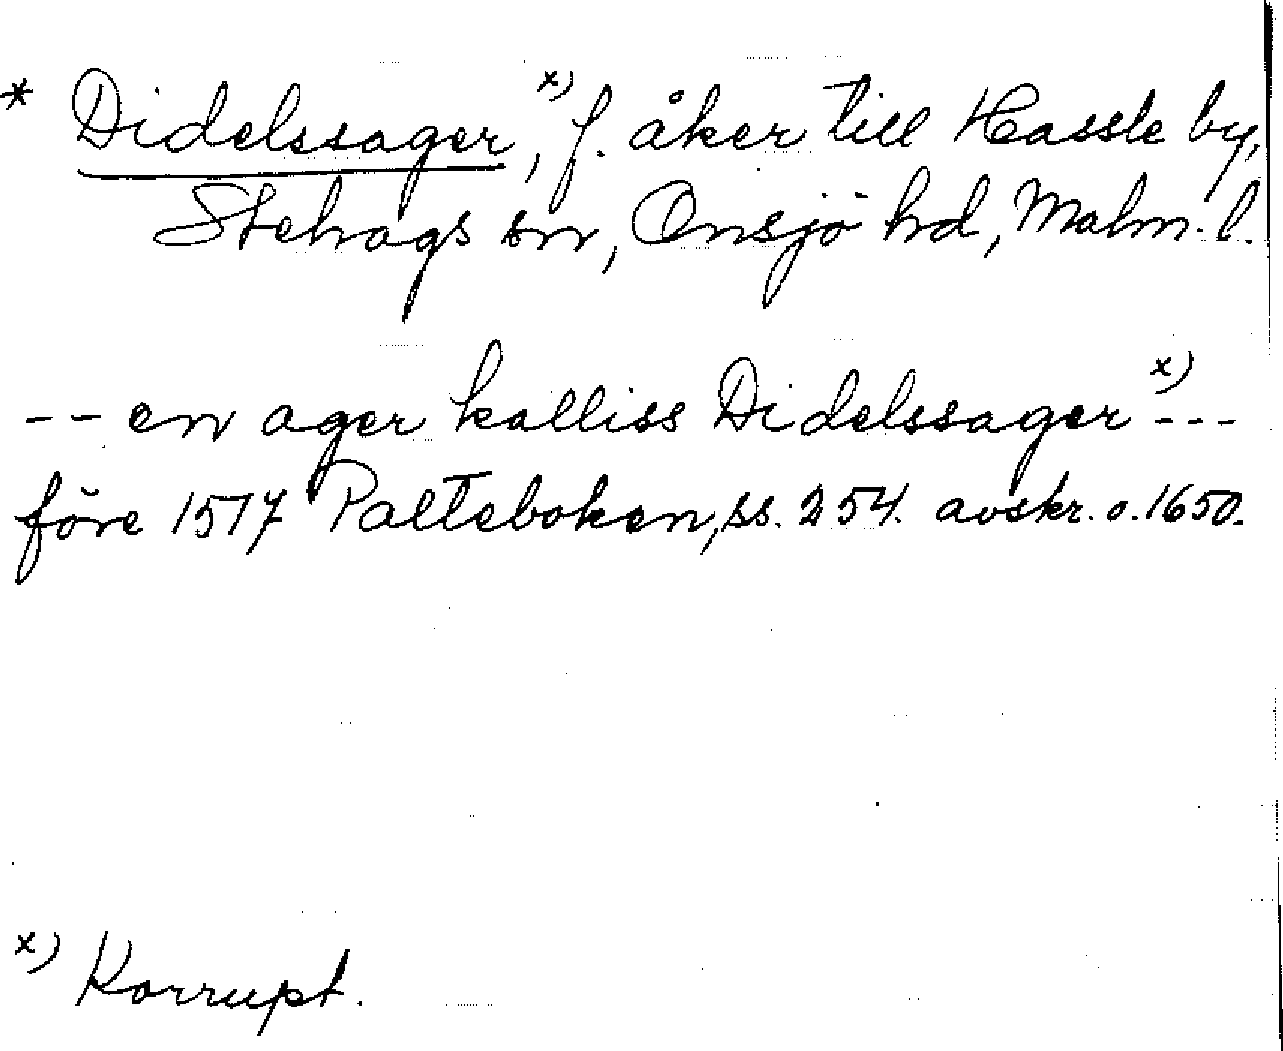 * Didelssager,ˣ⁾ f. åker till Hassle by,
Stehags sn, Onsjö hd, Malm. l.
-- en ager kalliss Didelssagerˣ⁾ ---
före 1517 Palteboken, ss. 254. avskr. o. 1650.
ˣ⁾ Korrupt.